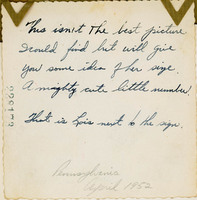 This isn't the best picture
I could find but will give
you some idea of her size.
A mighty cute little number.
That is Lois next to the sign.
Pennsylvania
April 1952